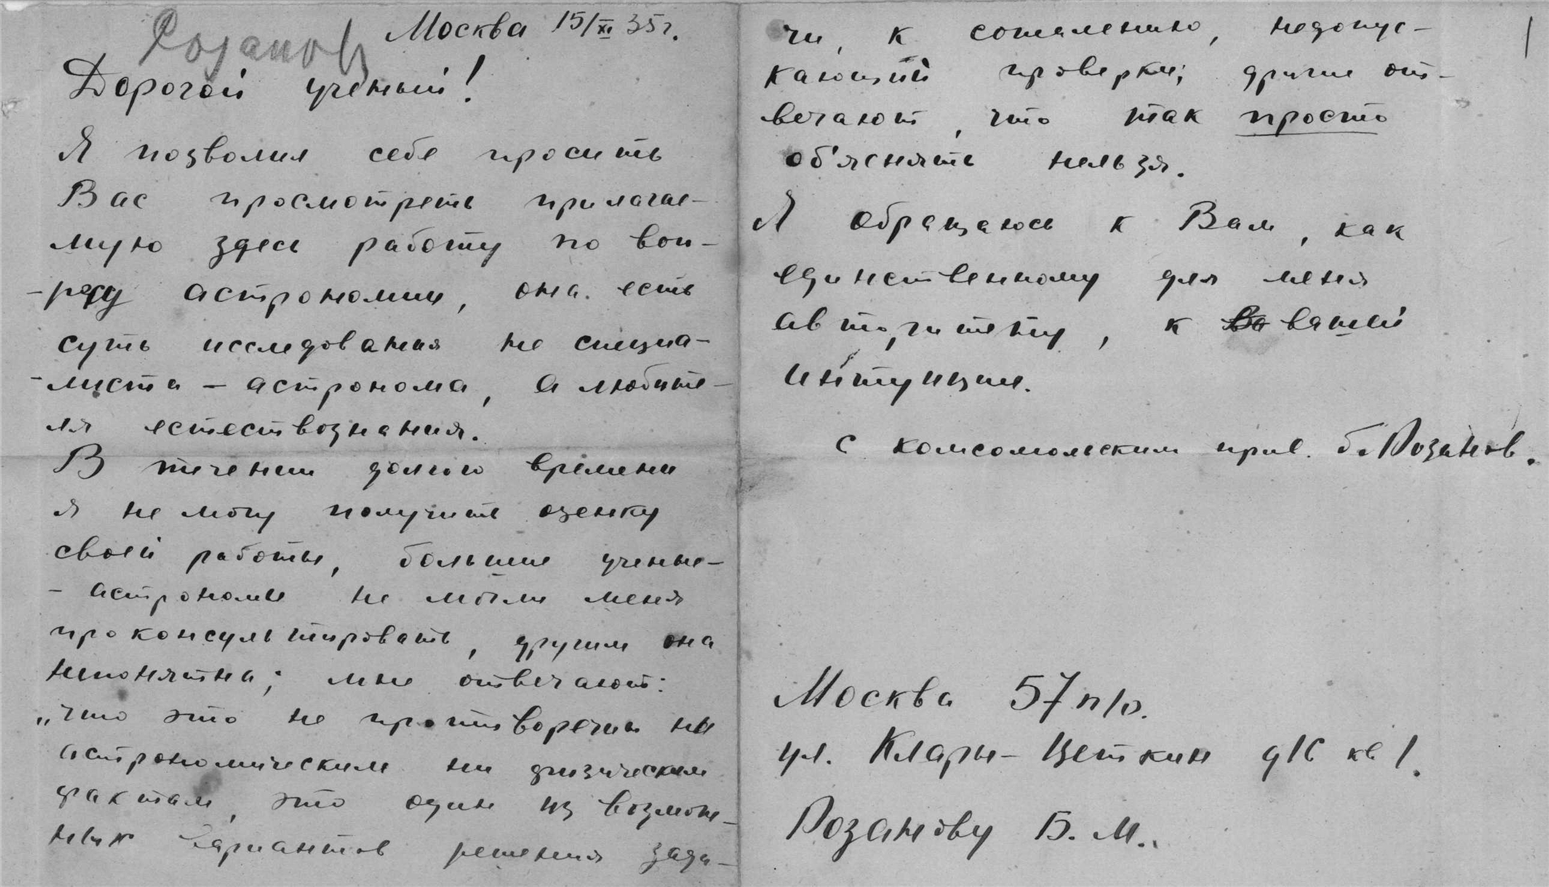 Розанов
Москва 15/XI 35 г.
Дорогой ученый!
Я позволил себе просить
Вас просмотреть прилагае-
мую здесь работу по воп-
-росу астрономии, она есть
суть исследования не специа-
-листа – астронома, а любите-
ля естествознания.
В течении долгого времени
я не могу получить оценку
своей работы, большие ученые-
- астрономы не могли меня
проконсультировать, другим она
непонятна; мне отвечают:
„что это не противоречит ни
астрономическим ни физическим
фактам, это один из возмож-
ных вариантов решения зада-
чи, к сожалению, недопус-
кающий проверки; другие от-
вечают, что так просто
об'яснять нельзя.
Я обращаюсь к Вам, как
единственному для меня
авторитету, к вашей
интуиции.
С комсомольским прив. Б. Розанов.
Москва 57 п/о.
ул. Клары-Цеткин д 16 кв 1.
Розанову Б. М..